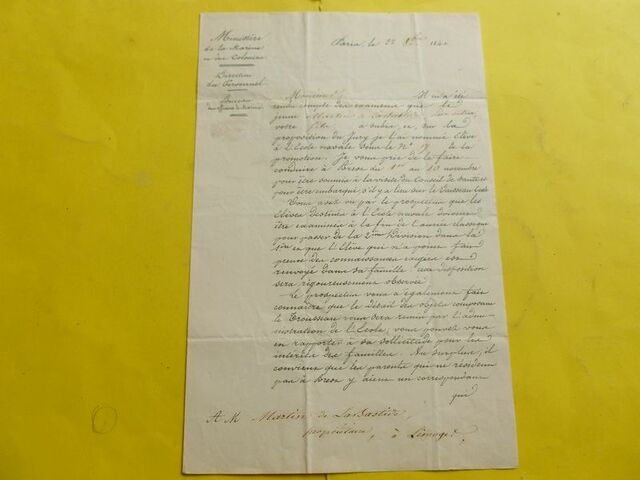 Ministère
de la Marine
et des Colonies
Direction
du Personnel
Bureau
Paris, le 22 8bre 184
Monsieur, Il m'a été
rendu compte des examens que le
jeune Martin de Labastide,
votre fils a subis, et, sur la
proposition du Jury, je l'ai nommé Elève
à l'Ecole navale sous le N° 19 de la
promotion. Je vous prie de le faire
conduire à Brest du 1er au 10 novembre
pour être soumis à la visite du Conseil de santé et
pour être embarqué, s'il y a lieu sur le Vaisseau Ecole
Vous avez vu par le prospectus que les
Elèves destinés à l'Ecole navale doivent
être examinés à la fin de l'année classique
pour passer de la 2ème Division dans la
1ère et que l'Elève qui n'a point fait
preuve des connaissances exigées est
renvoyé dans sa famille cette disposition
sera rigoureusement observée.
Le prospectus vous a également fait
connaître que le détail des objets composant
le Trousseau vous sera remis par l'admi-
nistration de l'Ecole, vous pouvez vous
en rapporter à sa sollicitude pour les
intérêts des familles. Au surplus, il
convient que les parents qui ne résident
pas à Brest y aient un correspondant
qui
A M Martin de Labastide,
propriétaire, à Limoges.